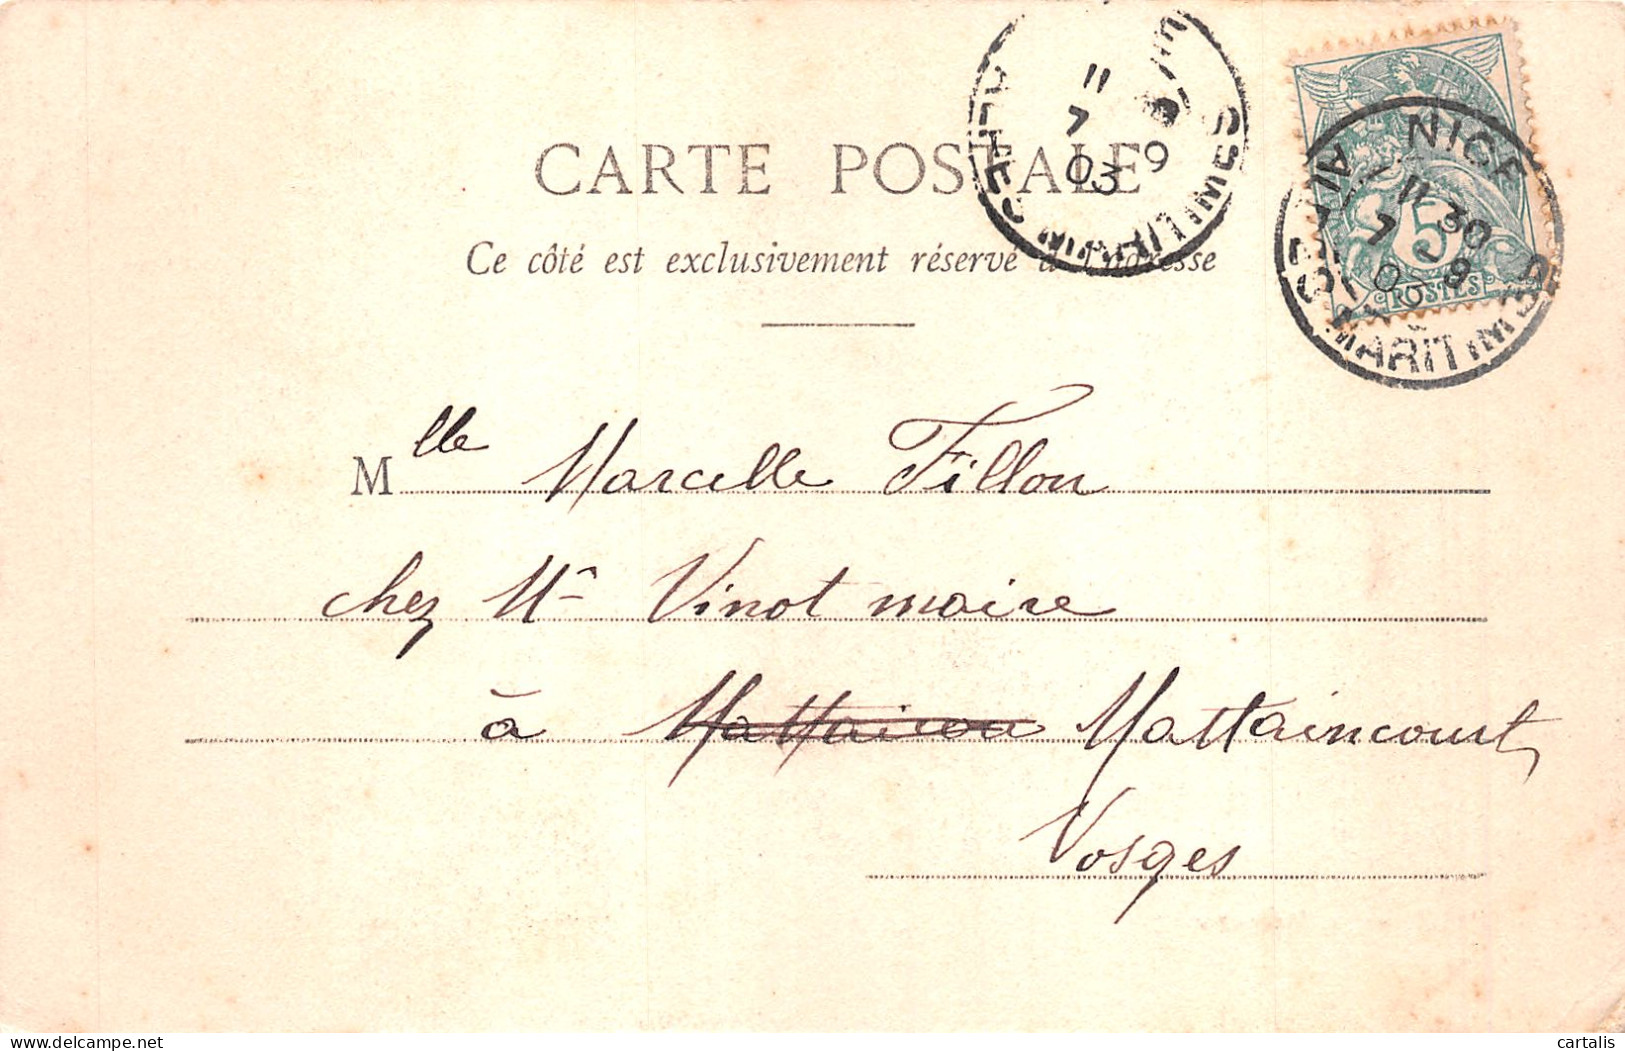 CARTE POSTALE
Ce côté est exclusivement réservé à l'adresse
NICE
ALPES MARITIMES
11 30
7 9
03
POSTES
5
ALPES MARITIMES
11
7 9
03
Mlle Marcelle Fillon
chez Mr Vinot maire
à Mattaincourt,
Vosges
cartalis
delcampe.net